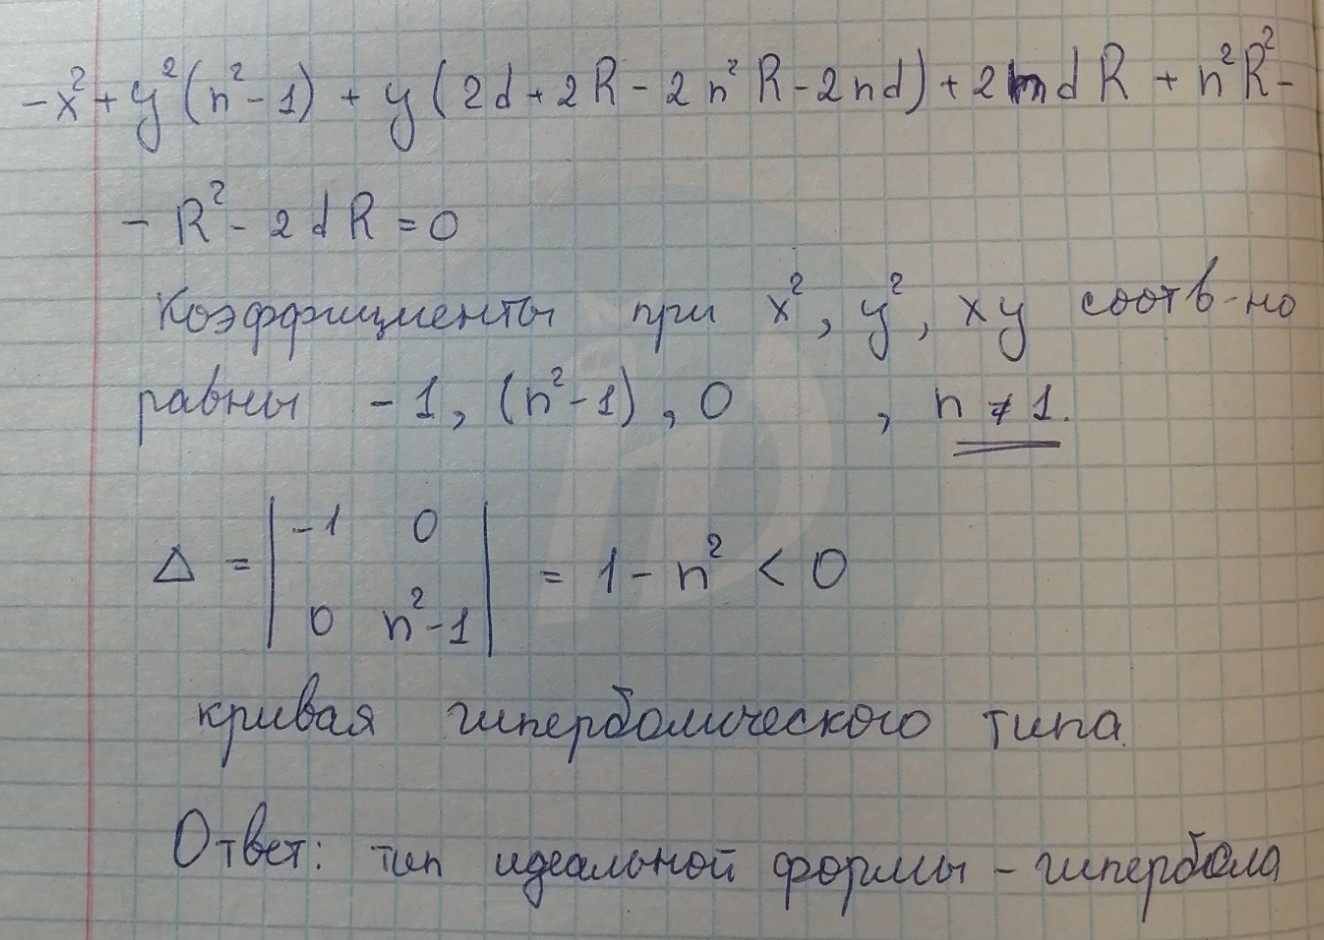 -x² + y²(n²-1) + y(2d+2R-2n²R-2nd)+2ndR + n²R²-
- R² - 2dR = 0
Коэффициенты при x², y², xy соотв-но
равны -1, (n²-1), 0 , n ≠ 1.
Δ = |-1 0
0 n²-1| = 1 - n² < 0
кривая гиперболического типа.
Ответ: тип идеальной формы - гипербола